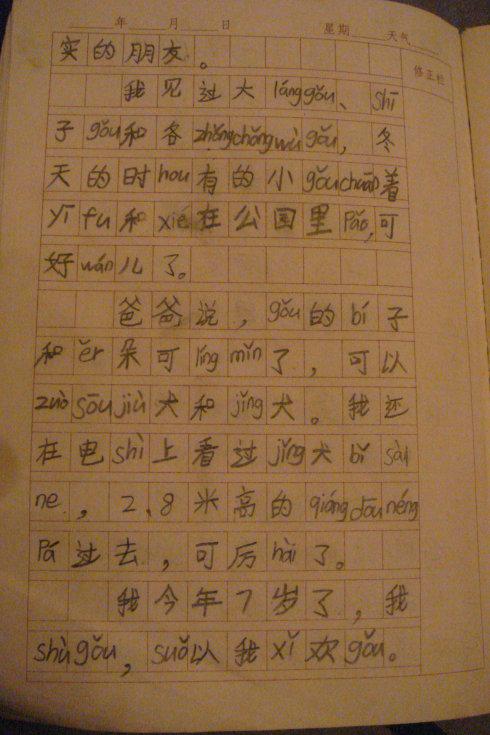 年 月 日 星期 天气
修正栏
实的朋友。
我见过大lánggǒu、shī
子gǒu和各zhǒngchǒngwùgǒu，冬
天的时hou有的小gǒuchuān着
yīfu和xié在公园里pǎo,可
好wán儿了。
爸爸说，gǒu的bí子
和ěr朵可língmǐn了，可以
zuòsōujiù犬和jǐng犬。我还
在电shì上看过jǐng犬bǐsài
ne，2.8米高的qiángdōunéng
pá过去，可厉hài了。
我今年7岁了，我
shǔgǒu，suǒ以我xǐ欢gǒu。